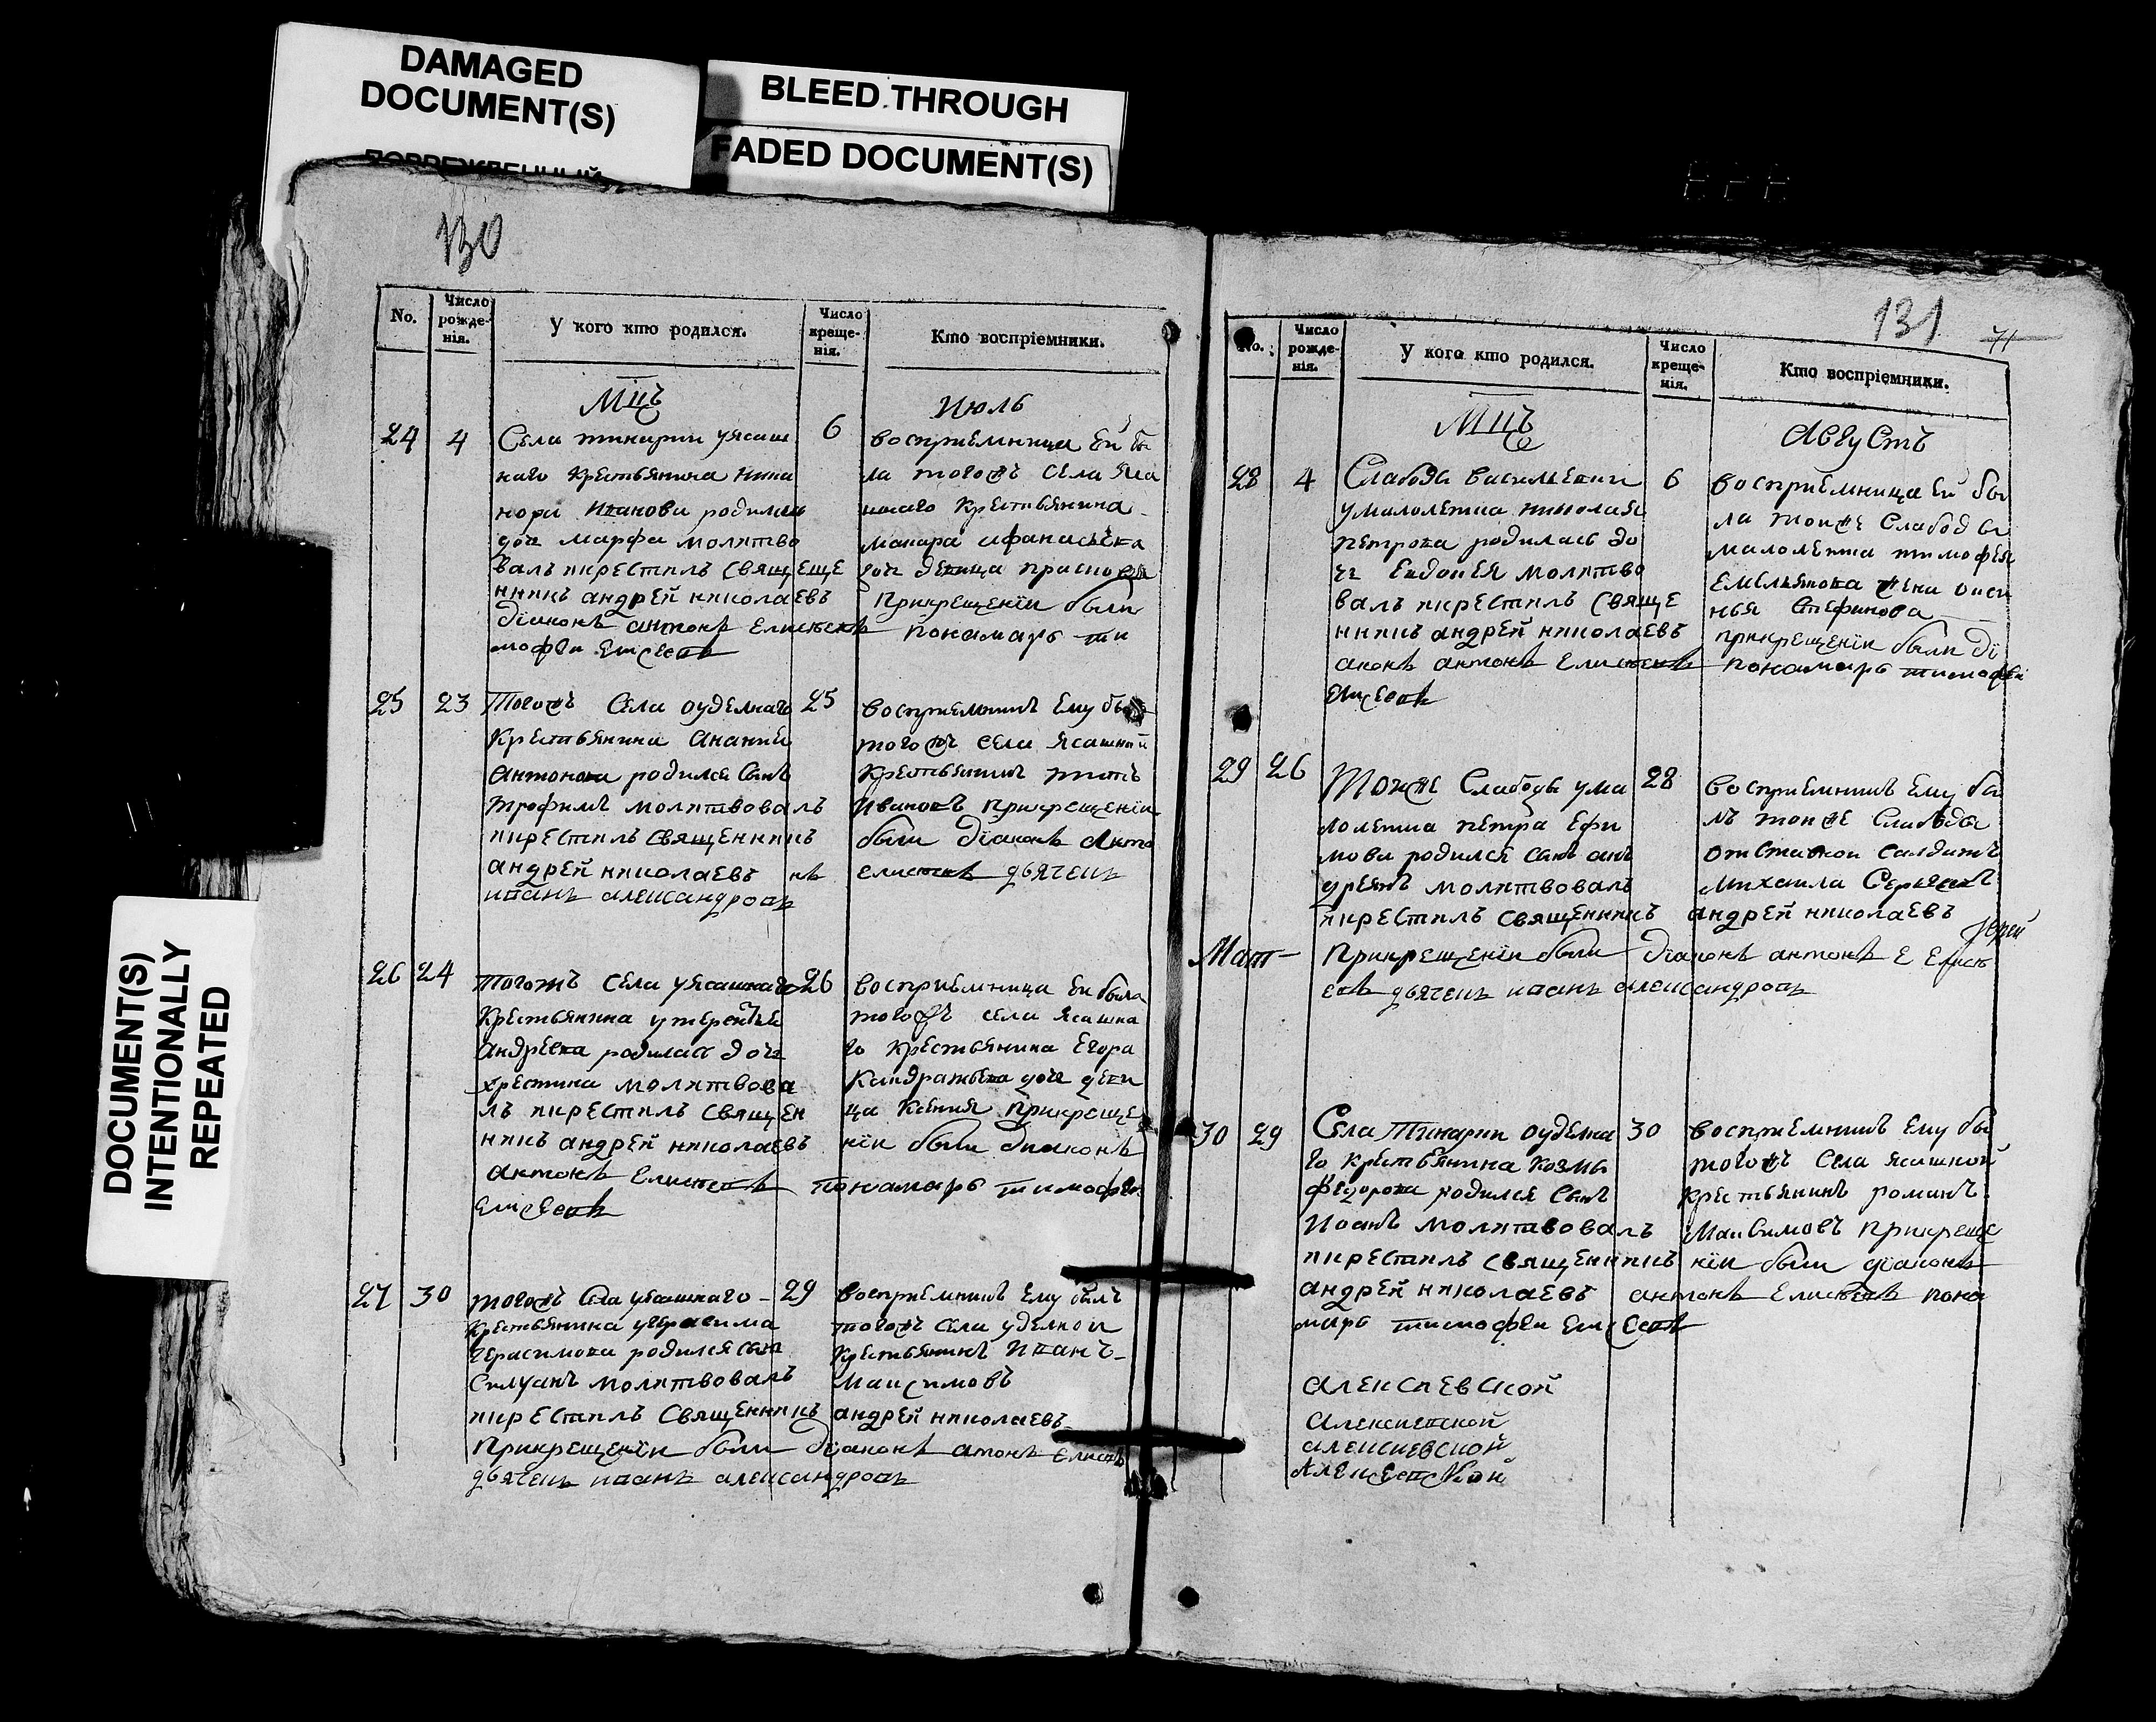 DAMAGED
DOCUMENT(S)
BLEED THROUGH
FADED DOCUMENT(S)
DOCUMENT(S)
INTENTIONALLY
REPEATED
130
No.
Число рожде-нія.
У кого кто родился.
Число креще-нія.
Кто воспріемники.
Мцъ
Июль
24 4
Села тинарки уясаш
наго крестьянина
нора иванова родилась
дочь марфа молитво
валъ икрестилъ свящеще
нникъ андрей николаевъ
діаконъ антонъ елисеевъ понамарь ти
мофеи елисеевъ
6
восприемница ей бы
ла тогожъ села яса
шнаго крестьянина
макара афанасьева
дочь девица
прикрещении были
25 23
тогожъ села оуделнаго
крестьянина анании
антонова родился сынъ
трофимъ молитвовалъ
икрестилъ священникъ
андрей николаевъ нъ
иванъ александровъ
25
восприемникъ ему былъ
тогожъ села ясашной
крестьянинъ титъ
ивановъ прикрещении
были діаконъ анто
елисеевъ дьячекъ
26 24
тогожъ села уясашнаго
крестьянина утерентья
андреева родилась дочь
христина молитвова
лъ икрестилъ священ
никъ андрей николаевъ
антонъ елисеевъ понамарь тимофеи
елисеевъ
26
восприемница ей была
тогожъ села ясашна
го крестьянина егора
кандратьева дочь деви
ца ксения прикреще
нии были диаконъ
27 30
тогожъ села уясашнаго
крестьянина угерасима
герасимова родился сынъ
силуанъ молитвовалъ
икрестилъ священникъ
прикрещении были діаконъ антонъ елисеевъ
дьячекъ иванъ александровъ
29
восприемникъ ему былъ
тогожъ села уделной
крестьянинъ иванъ
максимовъ
андрей николаевъ
131
71
No.
Число рожде-нія.
У кого кто родился.
Число креще-нія.
Кто воспріемники.
Мцъ
Августъ
28 4
Слабоды василевки
умалолетка николая
петрова родилась до
чь евдокея молитво
валъ икрестилъ свяще
нникъ андрей николаевъ
аконъ антонъ елисеевъ понамарь тимофеи
елисеевъ
6
восприемница ей бы
ла тойже слабоды
малолетка тимофея
емельянова жена
стефанова
прикрещении были ді
29 26
Тойже слабоды ума
лолетка петра ефи
мова родился сынъ ан
дреянъ молитвовалъ
икрестилъ священникъ
28
восприемникъ ему бы
лъ тойже слабоды
отставной салдатъ
михаила сергеевъ
андрей николаевъ
иерей
Мат
прикрещении были діаконъ антонъ е елисе
евъ дьячекъ иванъ александровъ
30 29
Села тинарки оуделна
го крестьянина козмы
федорова родился сынъ
иоанъ молитвовалъ
икрестилъ священникъ
андрей николаевъ антонъ елисеевъ пона
марь тимофеи елисеевъ
30
восприемникъ ему бы
тогожъ села ясашной
крестьянинъ романъ
максимовъ прикреще
нии были діаконъ
алексиевской
алексиевской
алексиевской
алексеевской